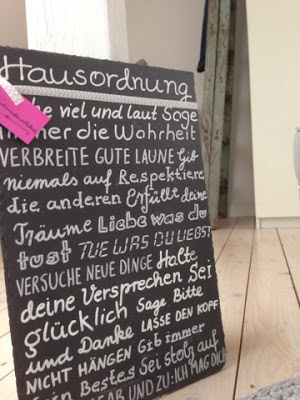 Hausordnung
viel und laut Sage
die Wahrheit
VERBREITE GUTE LAUNE Gib
niemals auf Respektiere
die anderen Erfüllt deine
Träume Liebe was du
tust TUE WAS DU LIEBST
VERSUCHE NEUE DINGE Halte
deine Versprechen Sei
glücklich Sage Bitte
und Danke LASSE DEN KOPF
NICHT HÄNGEN Gib immer
Dein Bestes Sei stolz auf
AB UND ZU: ICH MAG DICH